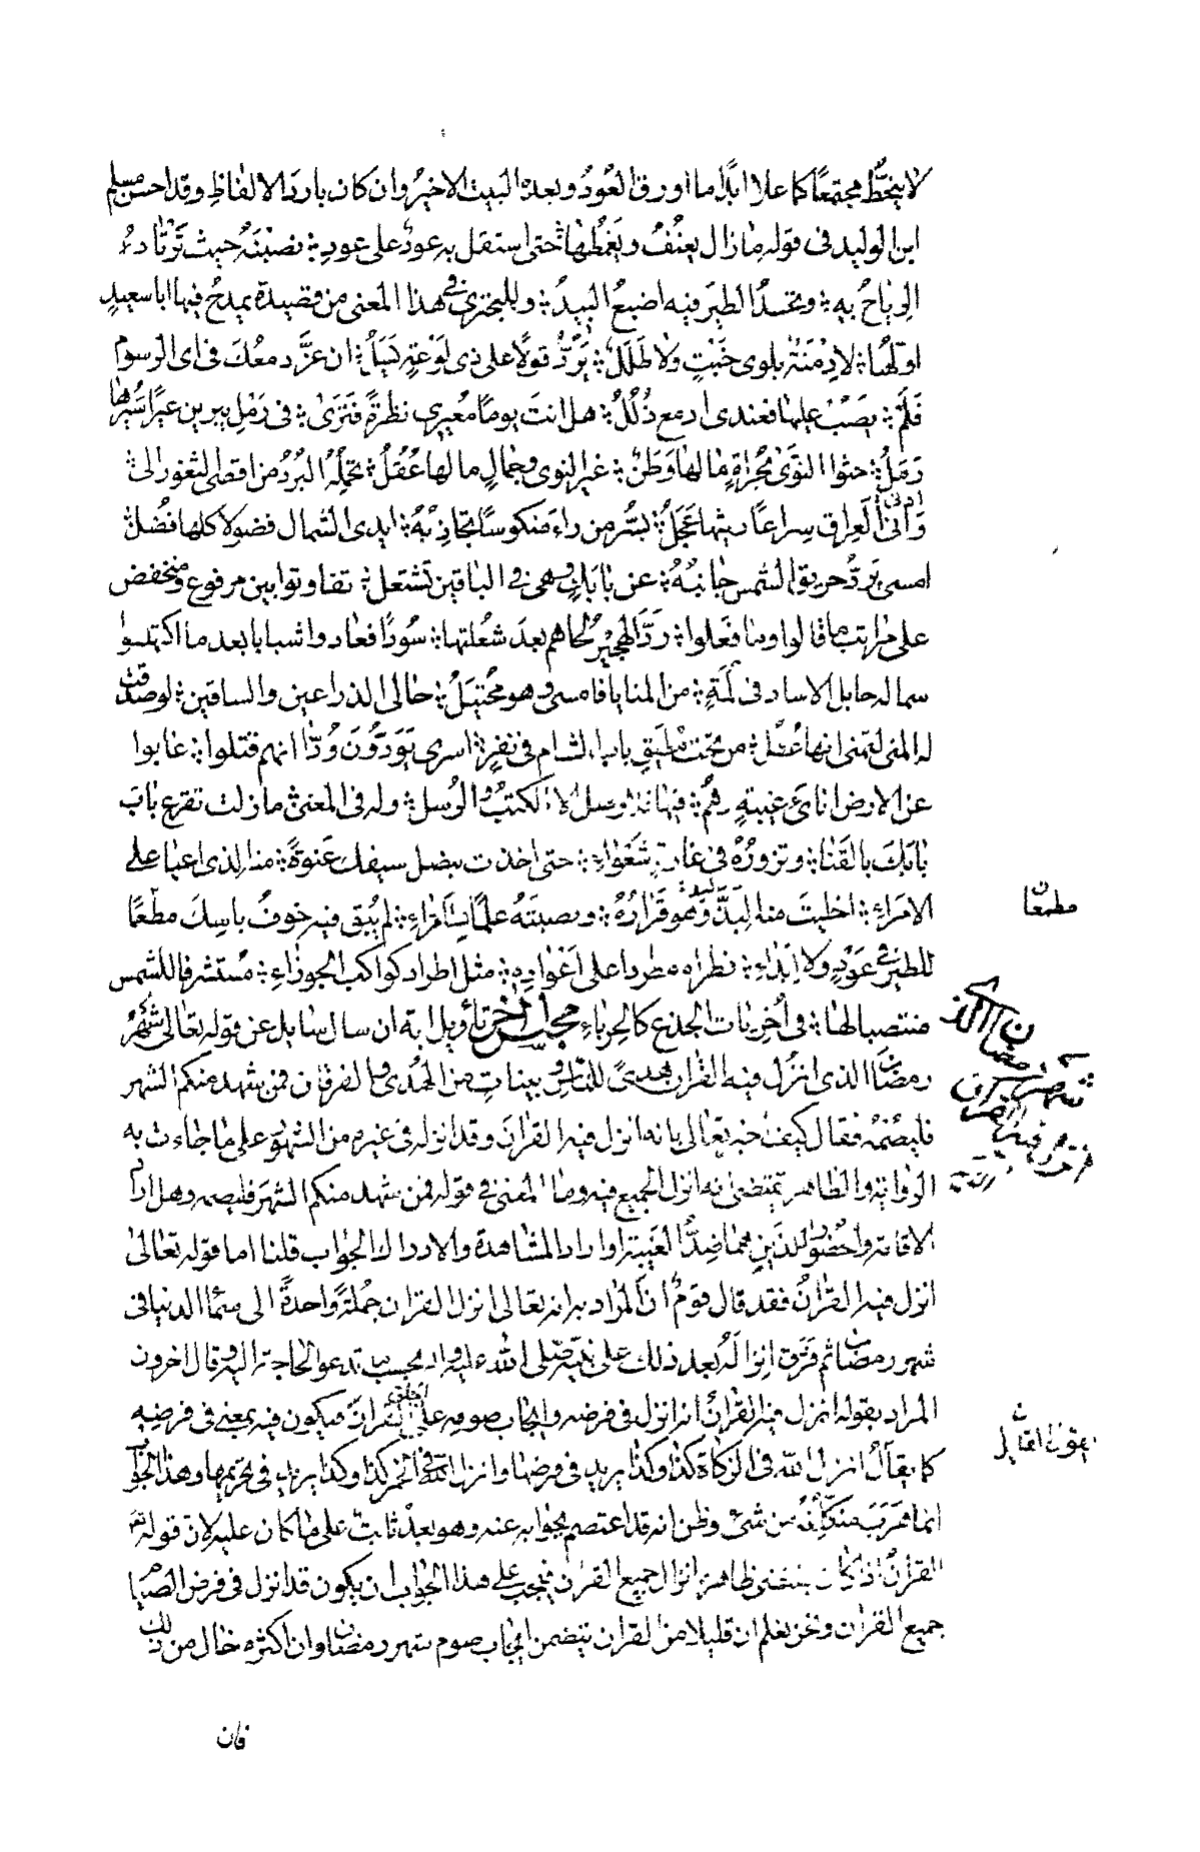 لا ينحطّ مجتمعًا كما علا ابدًا ما اورق العُودُ وبعده البيت الاخيرُ وان كان باردَ الالفاظِ وقد احسن مسلم
ابن الوليد فى قوله ما زال يعنُفُ ويَغمُطها حتى استقل به عودٌ على عودِ نصبْتَهُ حيث تَرْتَا دُ
الرياحُ به وتحسدُ الطيرَ فيه اضبعُ البيدُ وللبحترى فى هذا المعنى من قصيدة يمدحُ فيها ابا سعيدٍ
اوّلها لا دِمْنَةٌ بلوى خَبْتٍ ولا طَلَلُ يَرُدُّ قولًا على ذى لوْعَةٍ يَسَلُ ان عزَّ دمعُكَ فى اى الرسوم
فَلَمْ يصُبْ عليها فعندى ادمع ذُلُلُ هل انتَ يومًا مُعِيرى نظرةً فَتَرَىٰ فى رَمل يبرين عيرًا سَيرُها
رَمَلُ حثوا النوَىٰ بحُداةٍ ما لها وَطَنٌ غير النوى وجمالٍ ما لها عُقُلُ تحمِلُه البُردُ من اقصى الثغور الى
ادنى العراق سِراعًا ريثها عَجَلُ بسُرَّ من راءَ منكوسًا تجاذِبُهُ ايدى الشمال فضولا كلها فضُلُ
امسى يَردُّ حريق الشمس جانِبُهُ عن بابَكٍ وهى فى الباقين تَشتعلُ تفاوتوا بين مرفوع ومنخفض
على مراتب ما قالوا وما فَعَلوا رَدَّ الهجيرُ لحاهم بعدَ شعُلتها سُودًا فعادوا شبابا بعد ما اكتهلوا
سماله حابل الاساد فى لُمَّةٍ من المنايا فامسى وهو مُحْتَبَلُ حالى الذراعين والساقين لو صدقت
له المنى لتمنى انها عُطُلُ من تحت مُطبَقِ باب الشام فى نفرٍ اسرى يَوَدُّونَ وُدًّا انهم قتلوا غابوا
عن الارض انأىَ غيبةٍ وهُمُ فيها فلا وصلَ الا الكتبُ والرُسلُ وله فى المعنى ما زلت تقرع باب
بابَكَ بالقَنا وتزورُهُ فى غارةٍ شعَواءِ حتى اخذت بنصل سيفك عَنوةً منه الذى اعيا على
الامَراءِ اخليتَ منه البَدَّ وهو قَرَارُهُ ونصبتَهُ علَمًا بسامَراءِ لم يُبق فيه خوفُ باسِكَ مطعَمًا
للطير فى عَوْدٍ ولا اِبْداءِ فتراه مطردا على اعْوادِهِ مثل اطراد كواكب الجوزاءِ مستشرفا للشمس
منتصبا لها فى اُخرِيات الجذع كالحرباءِ مجلس آخر تأويل اية ان سال سايل عن قوله تعالى شَهْرُ
رمضان الذى انزل فيه القران هدىً للناس وبينات من الهُدى والفرقان فمن شهد منكم الشهر
فليصُمْهُ فقال كيف اخبر تعالى بانه انزل فيه القرانَ وقد انزله فى غيره من الشهور على ما جاءت به
الرواية والظاهر يقتضى انه انزل الجميع فيه وما المعنى فى قوله فمن شهد منكم الشهر فليصمه وهل اراد
الاقامة والحُضور اللذين هما ضِدَّا الغَيبَة او اراد المشاهدة والادراك الجواب قلنا اما قوله تعالى
انزل فيه القرانُ فقد قال قومٌ ان المراد به انه تعالى انزل القران جُملةً واحدةً الى سماء الدنيا فى
شهر رمضان ثم فَرَّق انزالَهُ بعد ذلك على نبيّه صلى الله عليه واله بحسب ما تدعو الحاجة اليه وقال اخرون
المراد بقوله انزل فيه القرانُ انه انزل فى فرضه وايجاب صومه على الخلق القرانَ فيكون فيه بمعنى فى فرضه
كما يقالُ انزل الله فى الزكاة كذا وكذا يريد فى فرضها وانزل الله فى الخمر كذا وكذا يريد فى تحريمها وهذا الجواب
انما هَرَبَ متكلِّفُهُ من شىْ وظن انه قد اعتصم بجوابه عنه وهو بعدُ ثابتٌ على ما كان عليه لان قوله
القرانُ اذا كان يقتضى ظاهره انزال جميع القران فيجب على هذا الجواب ان يكون قد انزل فى فرض الصيام
جميع القران ونحن نعلم ان قليلا من القران يتضمن ايجاب صوم شهر رمضان وان اكثره خال من ذلك
فان
مطمعا
شهر رمضان الذى